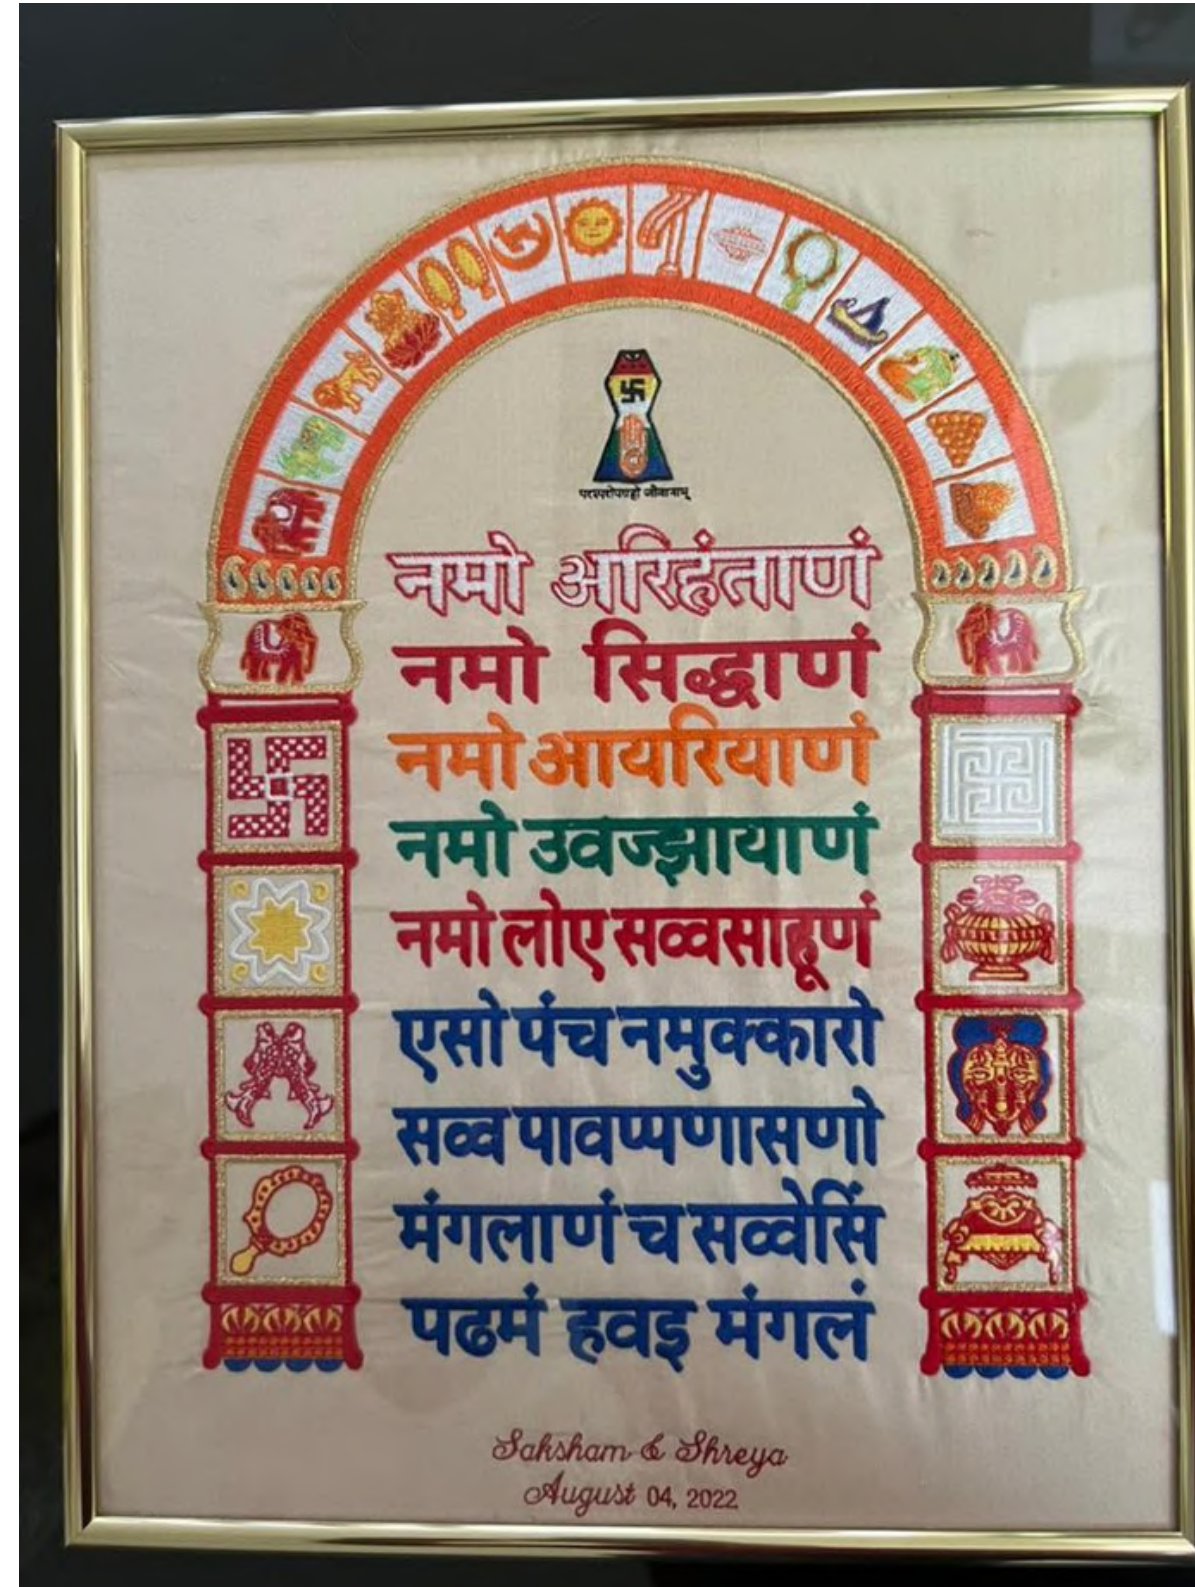 परस्परोपग्रहो जीवानाम्
नमो अरिहंताणं
नमो सिद्धाणं
नमो आयरियाणं
नमो उवज्झायाणं
नमो लोए सव्वसाहूणं
एसो पंच नमुक्कारो
सव्व पावप्पणासणो
मंगलाणं च सव्वेसिं
पढमं हवइ मंगलं
Saksham & Shreya
August 04, 2022